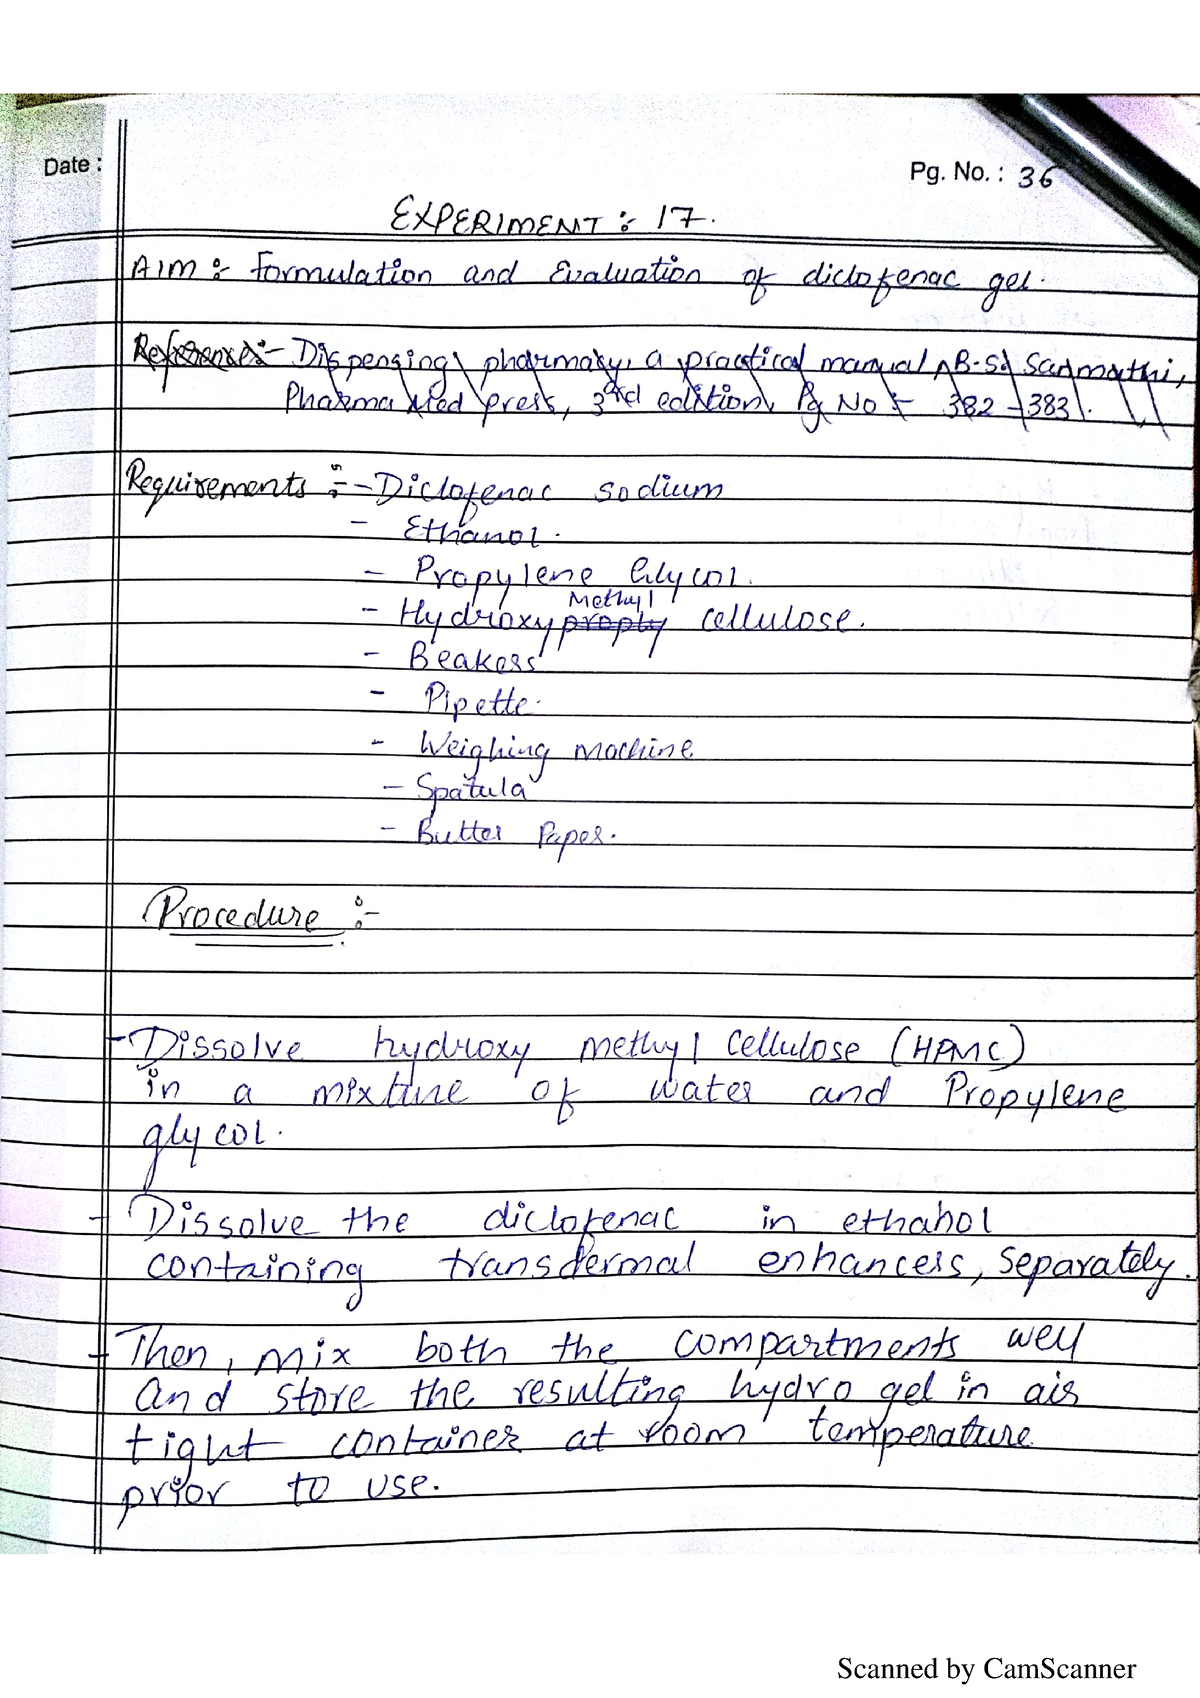 Date :
Pg. No. : 36
EXPERIMENT :- 17.
AIM :- Formulation and Evaluation of diclofenac gel.
Reference :- Dispensing pharmacy, a practical manual, B.S. Sanmathi,
Pharma Med press, 3rd edition, Pg No :- 382 - 383.
Requirements :- - Diclofenac sodium
- Ethanol.
- Propylene Glycol.
Methyl
- Hydroxyproply cellulose.
- Beakers
- Pipette.
- Weighing machine
- Spatula
- Butter Paper.
Procedure :-
- Dissolve hydroxy methyl cellulose (HPMC)
in a mixture of water and Propylene
glycol.
- Dissolve the diclofenac in ethanol
containing transdermal enhancers, separately.
- Then, mix both the compartments well
and store the resulting hydro gel in air
tight container at room temperature
prior to use.
Scanned by CamScanner